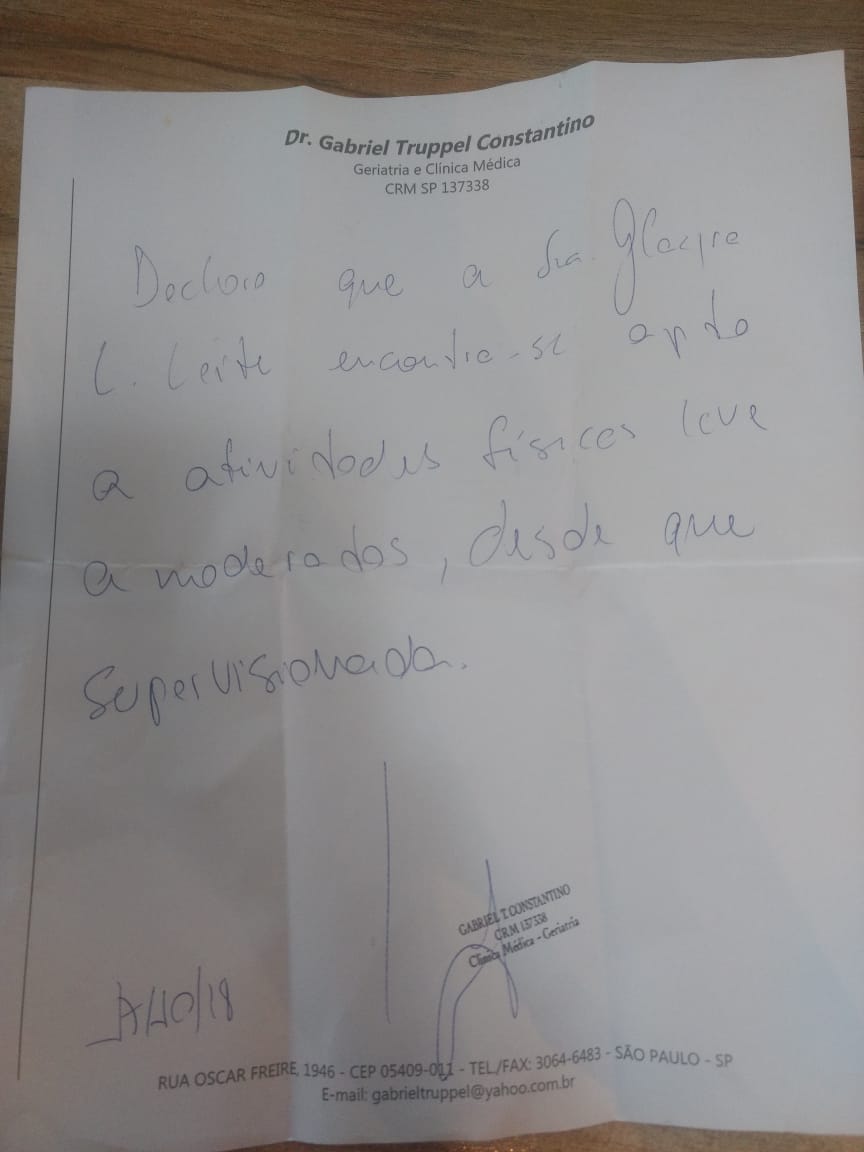 Dr. Gabriel Truppel Constantino
Geriatria e Clínica Médica
CRM SP 137338
Declaro que a Sra.
L. Leite encontra-se apta
a atividades físicas leve
a moderadas, desde que
supervisionada.
GABRIEL T. CONSTANTINO
CRM 137338
Clínica Médica - Geriatria
/10/18
RUA OSCAR FREIRE, 1946 - CEP 05409-011 - TEL./FAX: 3064-6483 - SÃO PAULO - SP
E-mail: gabrieltruppel@yahoo.com.br